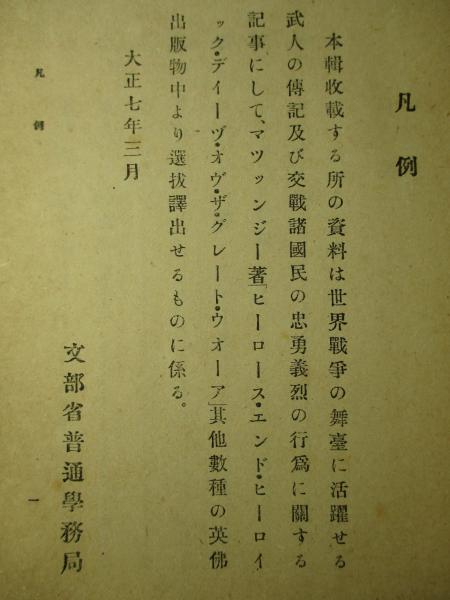 凡例
本輯收載する所の資料は世界戰爭の舞臺に活躍せる
武人の傳記及び交戰諸國民の忠勇義烈の行爲に關する
記事にして、マツッンジー著「ヒーロース・エンド・ヒーロイ
ック・デイーヅ・オヴ・ザ・グレート・ウオーア」其他數種の英佛
出版物中より選拔譯出せるものに係る。
大正七年三月
文部省普通學務局
凡例
一